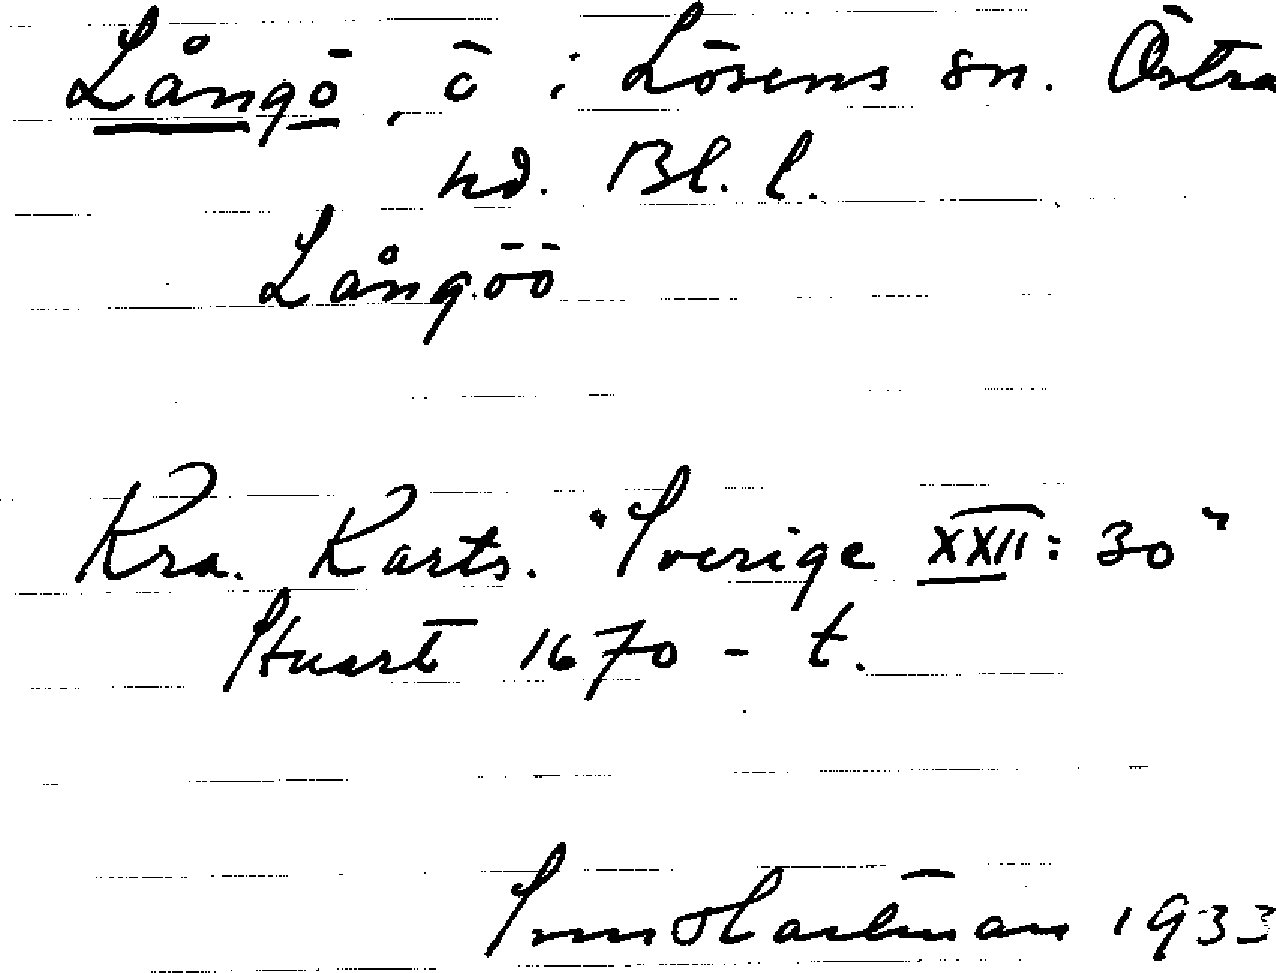 Långö, ö i Lösens sn. Östra
hd. Bl. l.
Långöö
Kra. Karts. "Sverige XXII: 30"
Stuart 1670 - t.
Hartman 1933